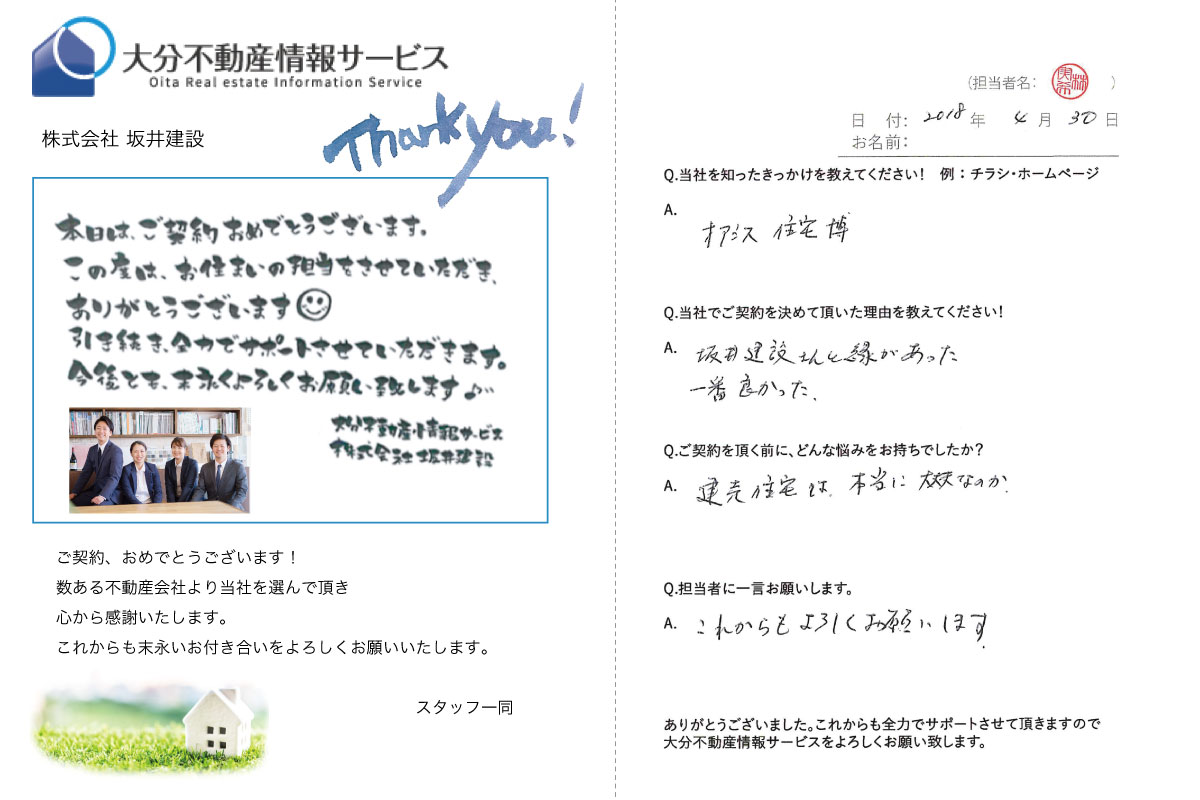 大分不動産情報サービス
Oita Real estate Information Service
株式会社 坂井建設
Thank you!
本日は、ご契約おめでとうございます。
この度は、お住まいの担当をさせていただき、
ありがとうございます
引き続き、全力でサポートさせていただきます。
今後とも、末永くよろしくお願い致します♪
大分不動産情報サービス
株式会社 坂井建設
ご契約、おめでとうございます！
数ある不動産会社より当社を選んで頂き
心から感謝いたします。
これからも末永いお付き合いをよろしくお願いいたします。
スタッフ一同
(担当者名: )
日 付: 2018 年 4 月 30 日
お名前:
Q.当社を知ったきっかけを教えてください! 例：チラシ・ホームページ
A.
オアシス 住宅博
Q.当社でご契約を決めて頂いた理由を教えてください!
A. 坂井建設さんと縁があった
一番良かった、
Q.ご契約を頂く前に、どんな悩みをお持ちでしたか?
A. 建売住宅は、本当に大丈夫なのか、
Q.担当者に一言お願いします。
A. これからもよろしくお願いします
ありがとうございました。これからも全力でサポートさせて頂きますので
大分不動産情報サービスをよろしくお願い致します。